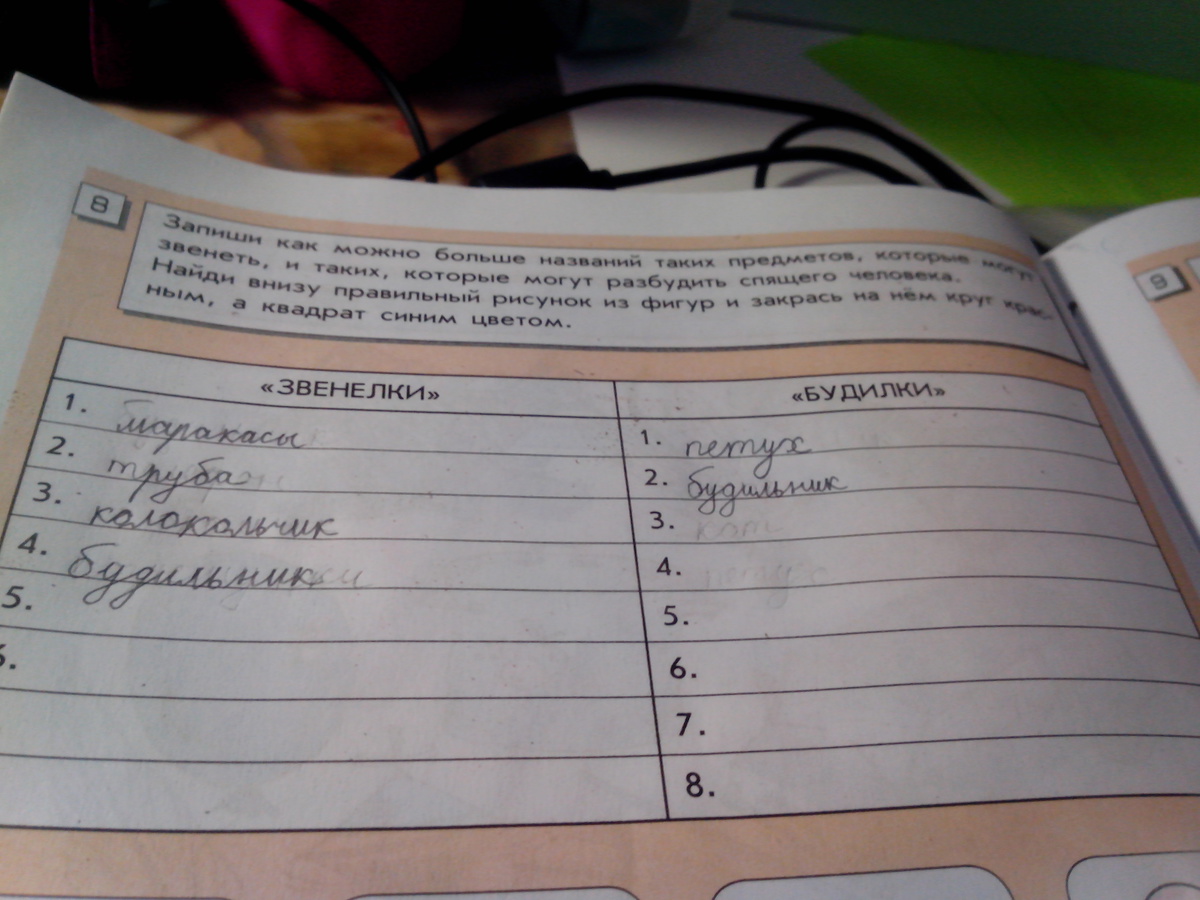 8
Запиши как можно больше названий таких предметов, которые могут
звенеть, и таких, которые могут разбудить спящего человека.
Найди внизу правильный рисунок из фигур и закрась на нём круг крас-
ным, а квадрат синим цветом.
9
«ЗВЕНЕЛКИ»
«БУДИЛКИ»
1. маракасы
2. труба
3. колокольчик
4. будильник
5.
6.
1. петух
2. будильник
3. кот
4. петух
5.
6.
7.
8.